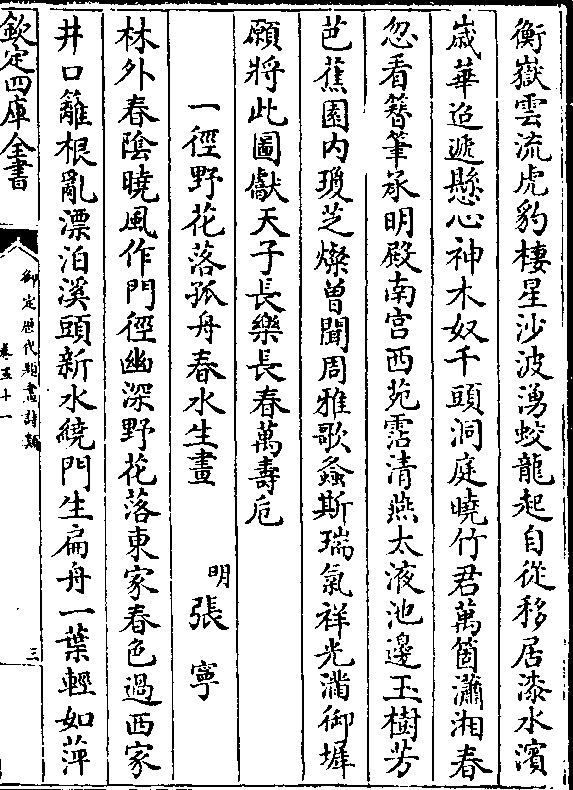 衡嶽雲流虎豹棲星沙波湧蛟龍起自從移居漆水濱
歲華迢遞懸心神木奴千頭洞庭曉竹君萬箇瀟湘春
忽看簪筆承明殿南宫西苑霑清燕太液池邊玉樹芳
芭蕉園内瓊芝燦曽聞周雅歌螽斯瑞氣祥光滿御墀
願將此圖獻天子長樂長春萬壽巵
一徑野花落孤舟春水生畫 明 張寧
林外春陰曉風作門徑幽深野花落東家春色過西家
井口籬根亂漂泊溪頭新水繞門生扁舟一葉輕如萍
欽定四庫全書
御定歴代題畫詩類
卷五十一
三